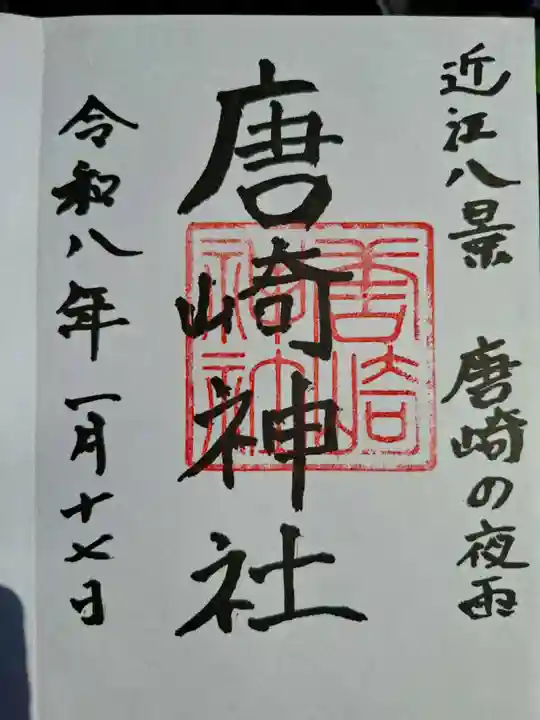 近江八景 唐崎の夜雨
唐崎神社
唐崎
神社
令和八年一月十七日